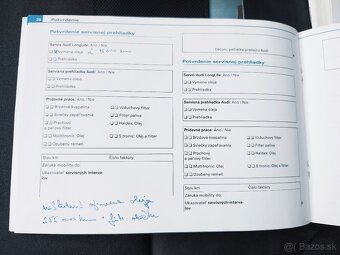 28
Potvrdenie
Potvrdenie servisnej prehliadky
Servis Audi LongLife: Áno / Nie
Výmena oleja
Prehliadka
Servisná prehliadka Audi: Áno / Nie
Prehliadka
Prídavné práce: Áno / Nie
Brzdová kvapalina
Vzduchový filter
Sviečky zapaľovania
Palivový filter
Prachový
a peľový filter
Haldex: Olej
Motor: Olej
S tronic: Olej a Filter
Ozubený remeň
Stav km
Číslo faktúry
Záruka mobility do:
Ukazovateľ servisných interva-
lov
výmena oleja
255
Dátum, pečiatka predajcu Audi
Potvrdenie servisnej prehliadky
Servis Audi LongLife: Áno / Nie
Výmena oleja
Prehliadka
Servisná prehliadka Audi: Áno / Nie
Prehliadka
Prídavné práce: Áno / Nie
Brzdová kvapalina
Vzduchový filter
Sviečky zapaľovania
Palivový filter
Prachový
a peľový filter
Haldex: Olej
Motor: Olej
S tronic: Olej a Filter
Ozubený remeň
Stav km
Číslo faktúry
Záruka mobility do:
Ukazovateľ servisných interva-
lov
Bazos.sk